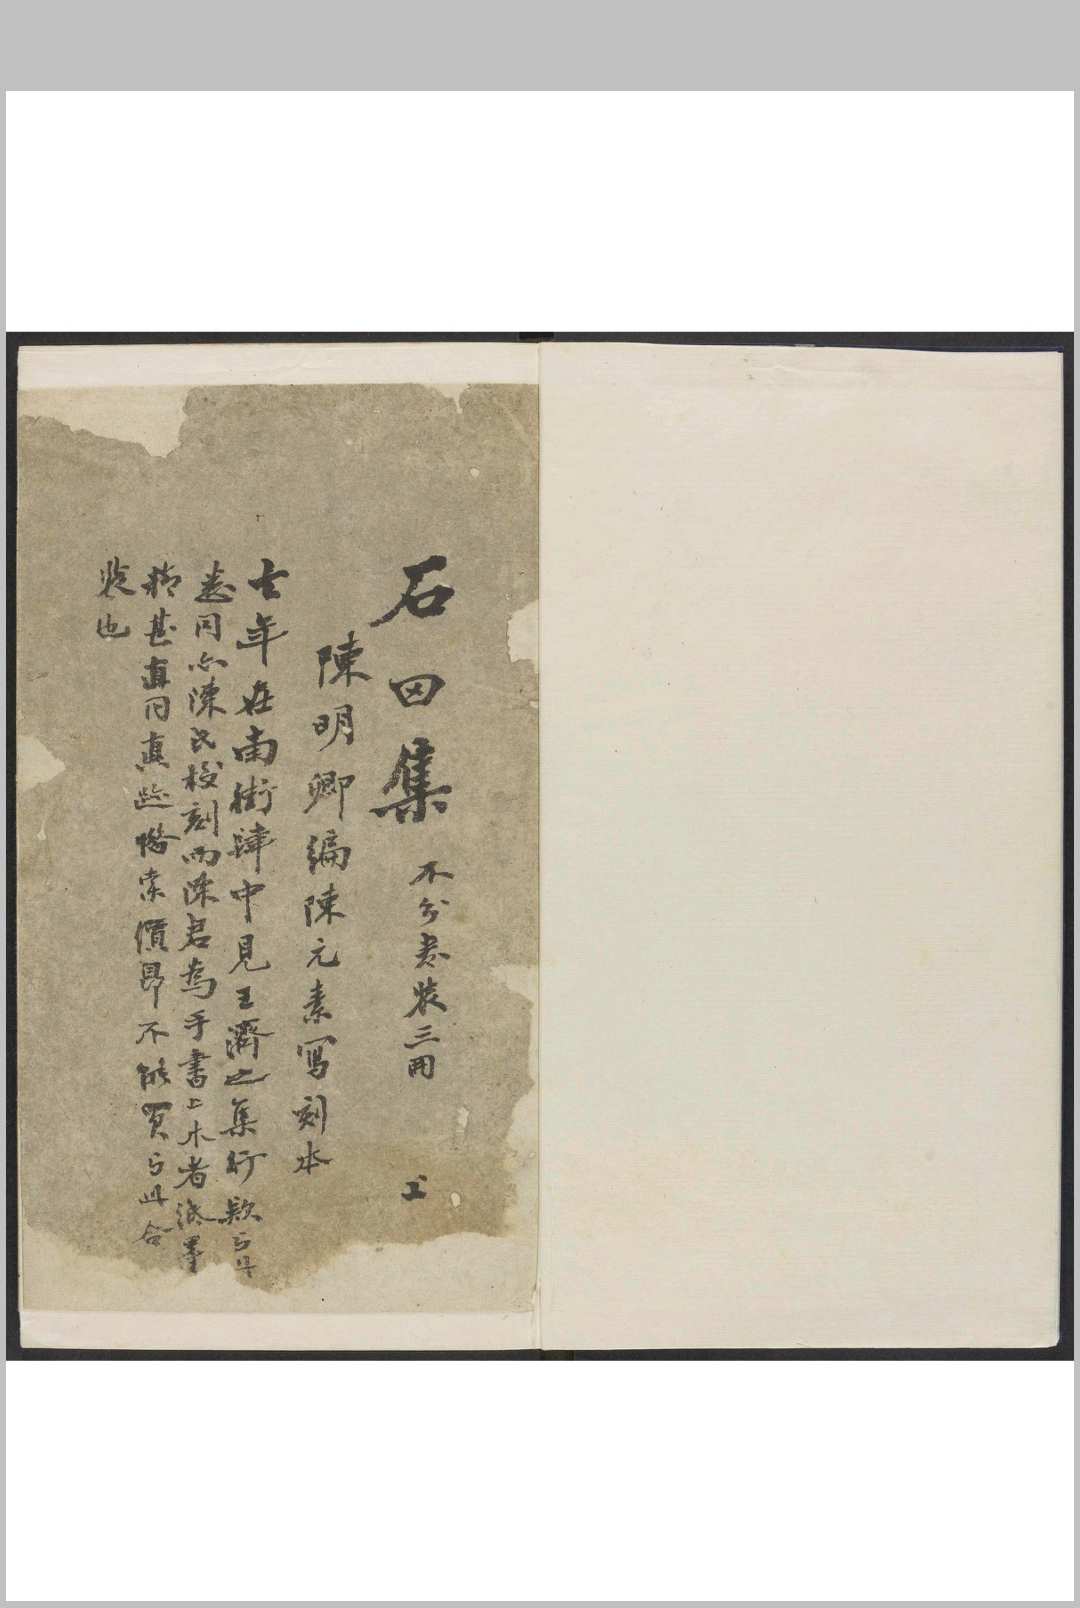 石田集 不分卷裝三冊 上
陳明卿編陳元素寫刻本
去年在南街肆中見王濟之集行款與此
悉同亦陳氏校刻而陳君為手書上木者紙墨
精甚直同真跡惜索價昂不能買與此合
裝也